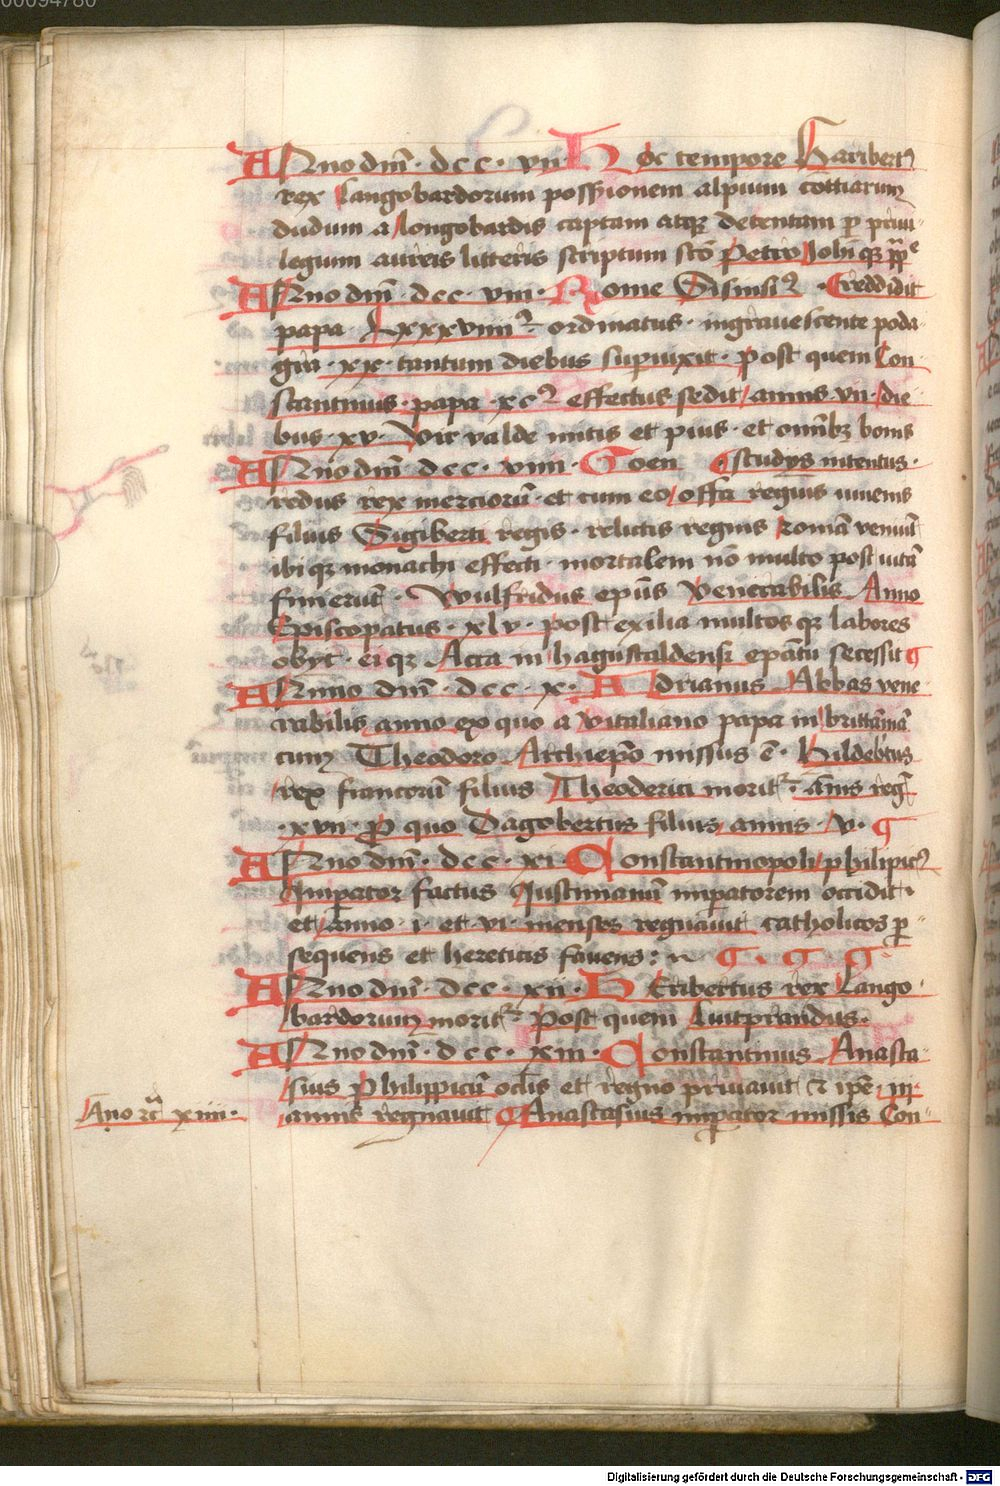 00094780
ANno dnī · dcc · vii · Hoc tempore Haribertꝰ
rex Langobardorum possessionem alpium cottiarum
dudum a longobardis captam atqꝫ detentam p priui-
legium aureis litteris scriptum scō Petro Johīqꝫ ppe
ANno dnī · dcc · viii · Rome Sisinnꝰ · Creddidit
papa Lxxxviiiiꝰ ordinatus · ingrauescente poda-
gra · xx · tantum diebus supuixit · Post quem Con-
stantinus · papa · xcꝰ effectus sedit annis vii · die-
bus · xv · Vir valde mitis et pius · et omībꝫ bonis
ANno dnī dcc · viiii · Coen ¶ studijs intentus ·
redus rex merciorū · et cum eo offa regnis iuuenis
filius Sigiberti regis · relictis regnis romā veniūt
ibiqꝫ monachi effecti · mortalem nō multo post uitā
finierūt · Wulfridus ep̄us Venerabilis Anno
Episcopatus · xlv · post exilia multosqꝫ labores
obijt · eiqꝫ Acca in hagustaldensi ep̄atū secessit ¶
ANnno dnī · dcc · x · Adrianus Abbas vene-
rabilis anno ex quo a vitaliano papa in brittāniā
cum Theodoro Archiep̄o missus ē · Hildebtus
rex francorū filius Theoderici moritꝛ · ānis regī
· xvii · Pro quo Dagobertus filius annis · v · ¶
ANno dnī · dcc · xi · Constantinopoli philipicꝰ
Imperator factus Justinianū imperatorem occidit ·
et anno · i · et · vi · menses regnauit catholicos p-
sequens et hereticis fauens : ¶ · ¶ · ¶ ·
ANno dnī · dcc · xii · Heribertus rex Lango-
bardorum moritꝛ · Post quem Luitprandus ·
ANno dnī · dcc · xiii · Constantinus Anasta-
sius Philippicū oclis et regno priuauit et ipē iij
annis regnauit ¶ Anastasius imperator missis Con-
Ano xiiii ·
Digitalisierung gefördert durch die Deutsche Forschungsgemeinschaft - DFG